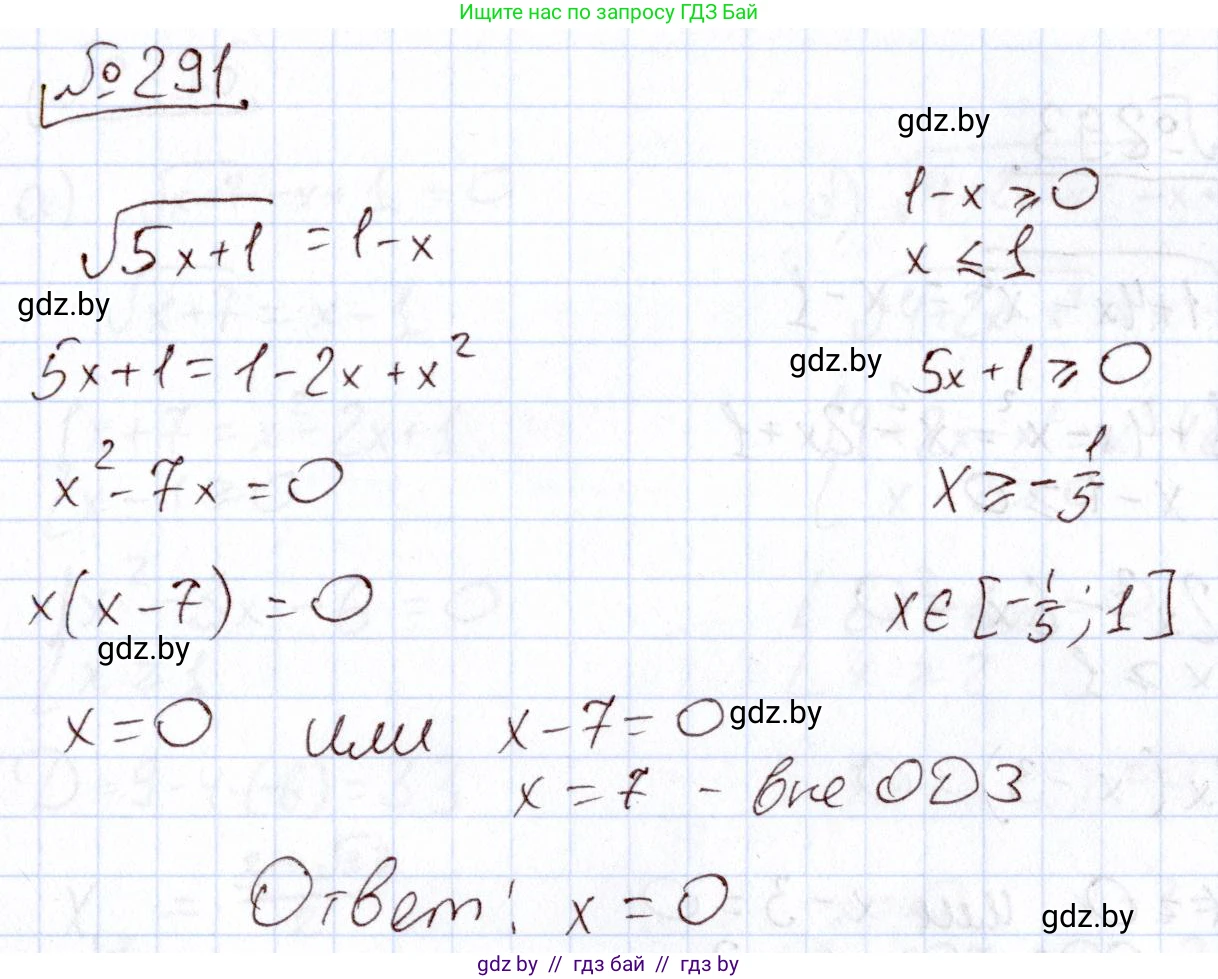 Ищите нас по запросу ГДЗ Бай
№291
gdz.by
1-x ⩾ 0
√5x+1 = 1-x
x ⩽ 1
gdz.by
5x+1 = 1-2x+x²
gdz.by
5x+1 ⩾ 0
x²-7x=0
x ⩾ -1/5
x(x-7) = 0
x∈[-1/5; 1]
gdz.by
x=0 или x-7=0
gdz.by
x=7 - вне ОДЗ
Ответ: x=0
gdz.by
gdz by // гдз бай // gdz by